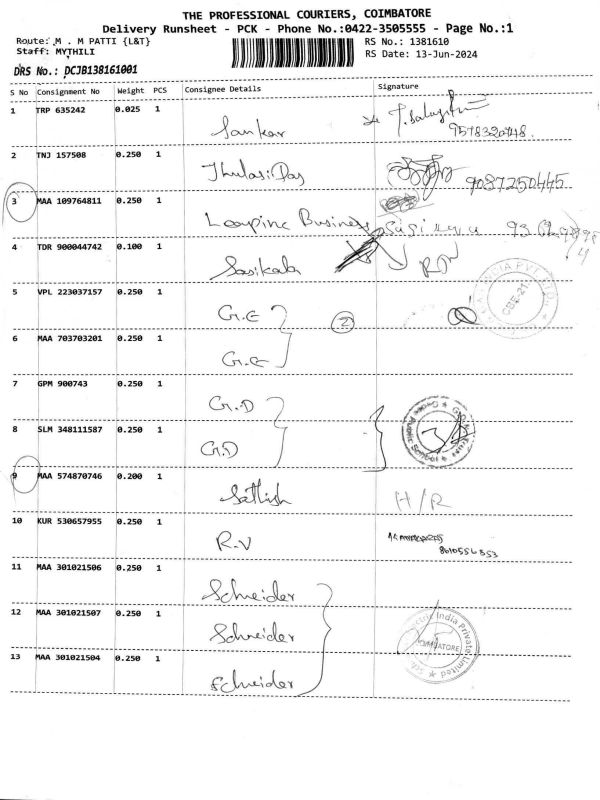 THE PROFESSIONAL COURIERS, COIMBATORE
Delivery Runsheet - PCK - Phone No.:0422-3505555 - Page No.:1
Route: M . M PATTI {L&T}
Staff: MYTHILI
RS No.: 1381610
RS Date: 13-Jun-2024
DRS No.: DCJB138161001
S No Consignment No Weight PCS Consignee Details Signature
1 TRP 635242 0.025 1 Sankar
9578320748.
2 TNJ 157508 0.250 1 Thulasi Das 9087250445
3 MAA 109764811 0.250 1 Business
4 TDR 900044742 0.100 1 Sasikala
5 VPL 223037157 0.250 1 G.E 2
6 MAA 703703201 0.250 1 G.E
7 GPM 900743 0.250 1 G.D
8 SLM 348111587 0.250 1 G.D
9 MAA 574870746 0.200 1 Sathish H/R
10 KUR 530657955 0.250 1 R.V
11 MAA 301021506 0.250 1 Schneider
12 MAA 301021507 0.250 1 Schneider
13 MAA 301021504 0.250 1 Schneider